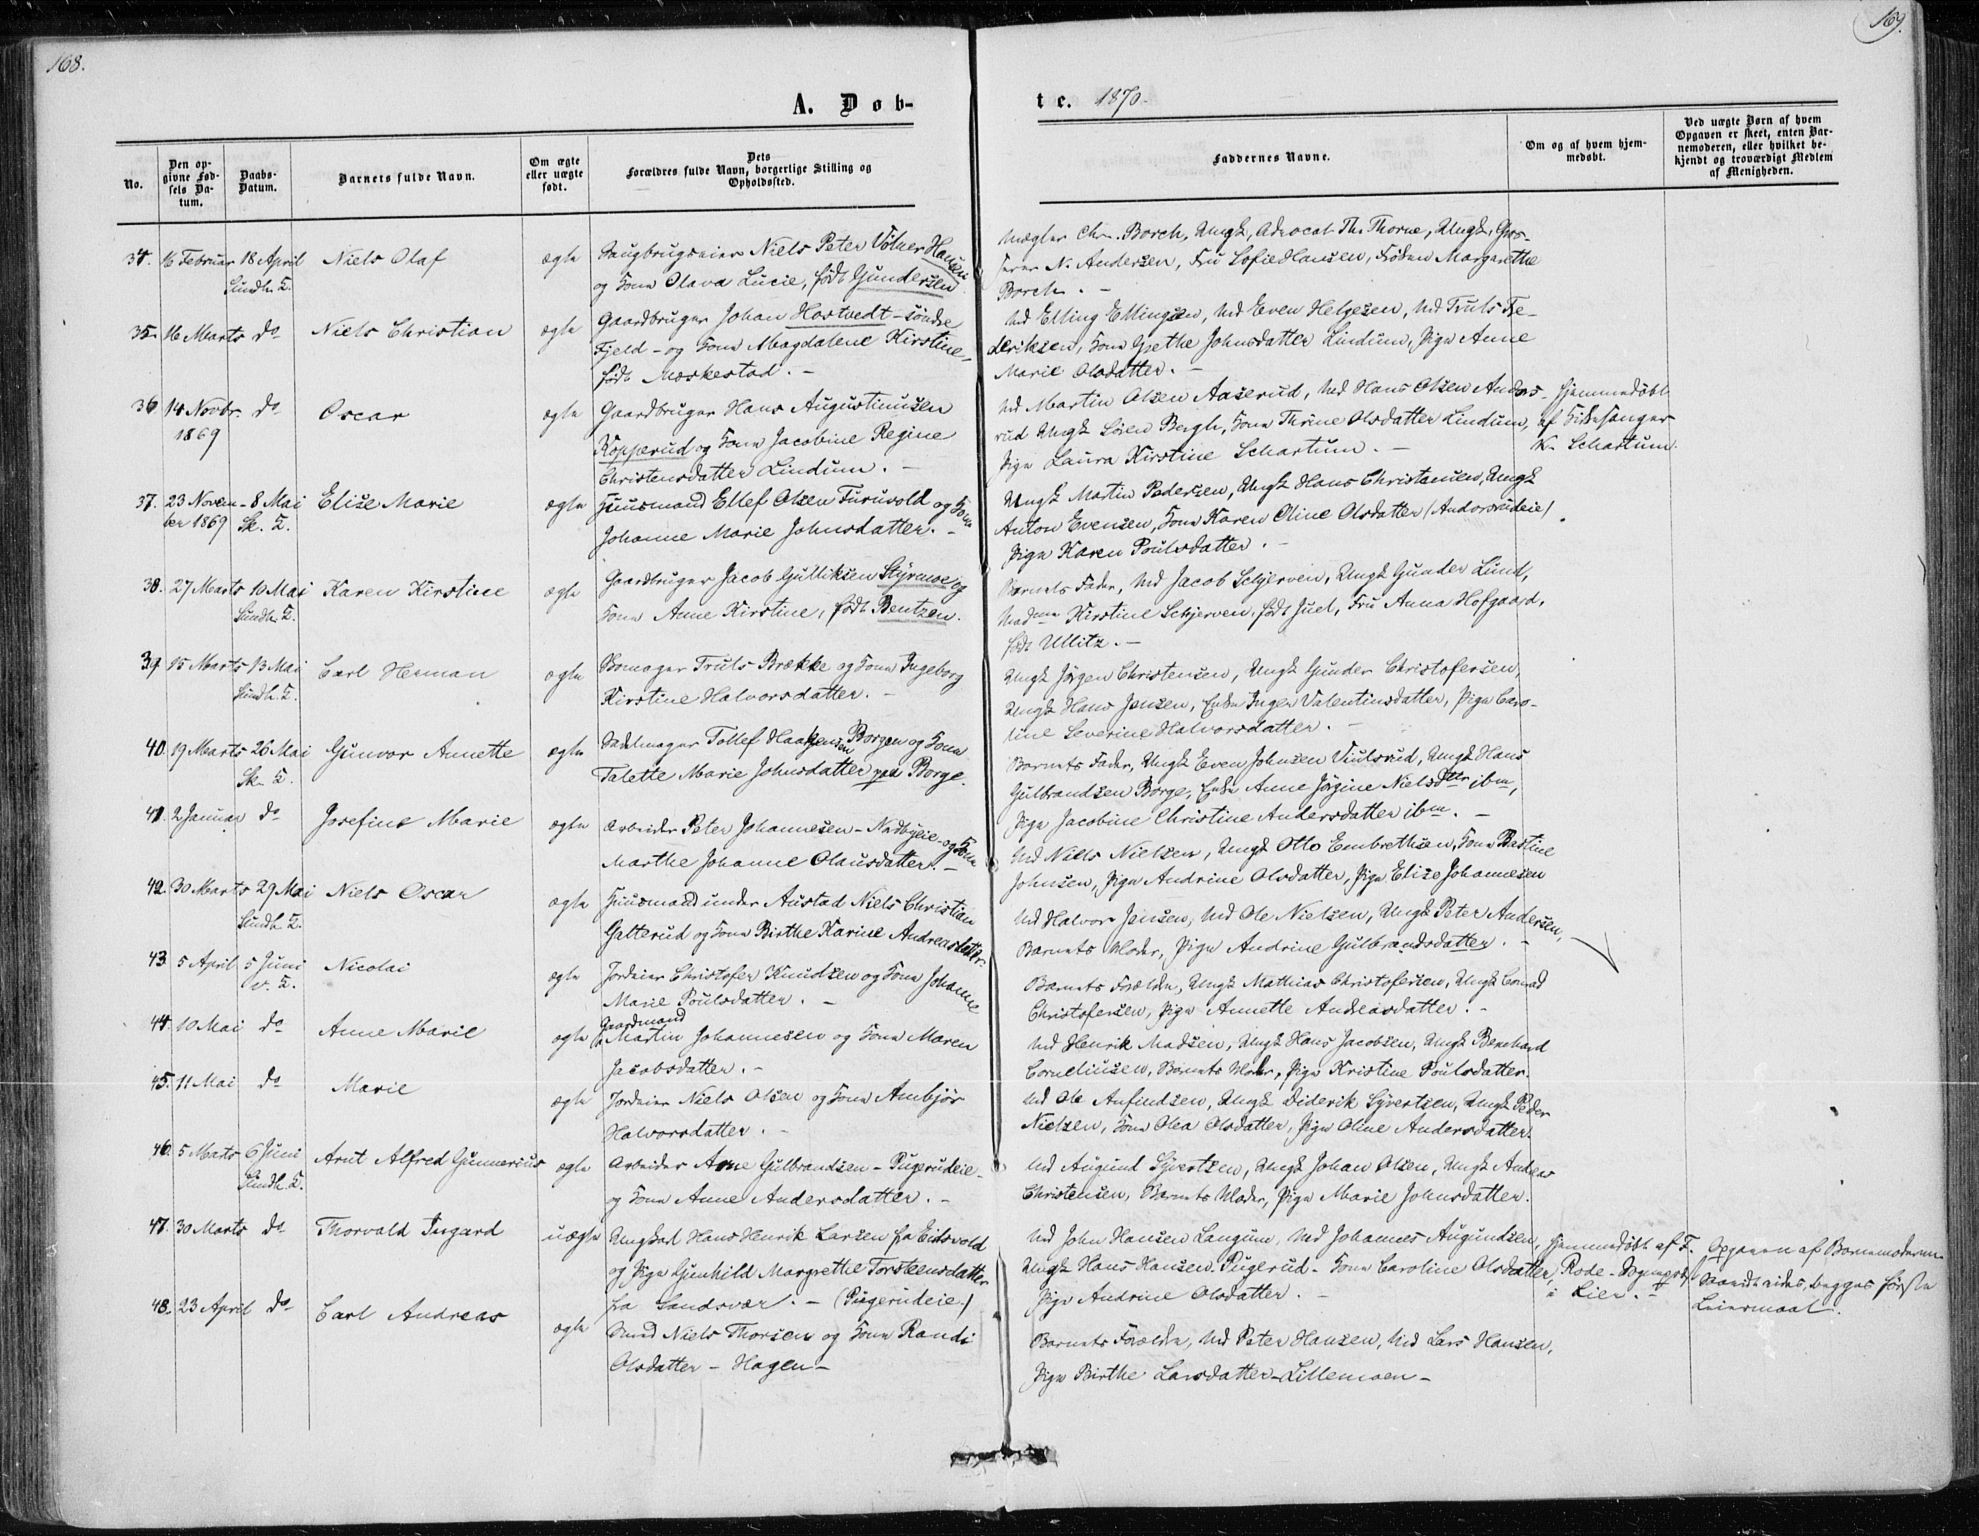 168.
169.
A. Døb-
te. 1870.
No.
Den opgivne Fødsels Datum.
Daabs-Datum.
Barnets fulde Navn.
Om ægte eller uægte født.
Forældres fulde Navn, borgerlige Stilling og Dets Opholdssted.
Faddernes Navne.
Om og af hvem hjemmedøbt.
Ved uægte Børn af hvem Opgaven er skeet, enten Barnemoderen, eller hvilket bekjendt og troværdigt Medlem af Menigheden.
34. 16 Februar 18 April Niels Olaf ægte Saugbrugseier Niels Peter Følner Hansen
Sundh. T. og Kone Olava Lucie, født Gundersen
Mægler Chr. Borch, Ungk. Advocat Th. Thorne, Ungk.
N. Andersen, Fru Sofie Hansen, Frøken Margarethe
Borch. -
35. 16 Marts do Niels Christian ægte Gaardbruger Johan Hostvedt - søndre
Fjeld - og Kone Magdalene Kirstine,
født Moskestad. -
Md Elling Ellingsen, Md Even Helgesen, Md Truls Fre-
deriksen, Kone Grethe Johnsdatter Lindum, Pige Anne
Marie Olsdatter. -
36 14 Novbr. do Oscar ægte Gaardbruger Hans Augustinusen
1869 Kopperud og Kone Jacobine Regine
Christensdatter Lindum. -
Md Martin Olsen Aaserud, Md Hans Olsen Andors- Hjemmedøbt
rud Ungk Søren Bergh, Kone Thrine Olsdatter Lindum, af Kirkesanger
Pige Laura Kirstine Schartum. - K. Schartum.
37. 23 Novem- 8 Mai Elise Marie ægte Huusmand Ellef Olsen Furuvold og Kone
ber 1869 Sk. T. Johanne Marie Johnsdatter. -
Ungk Martin Pedersen, Ungk Hans Christansen, Ungk
Anton Evensen, Kone Karen Oline Olsdatter (Andorsrudeie)
Pige Karen Poulsdatter. -
38. 27 Marts 10 Mai Karen Kirstine ægte Gaardbruger Jacob Gulliksen Styrmoe og
Sundh. T. Kone Anne Kirstine, født Bentzen.
Barnets Fader, Md Jacob Schjerven, Ungk Gunder Lund,
Madme Kirstine Schjerven, født Juel, Fru Anna Hofgaard,
født Ullitz. -
39. 15 Marts 13 Mai Carl Herman ægte Skomager Truls Brække og Kone Ingeborg
Sundh. T. Kirstine Halvorsdatter. -
Ungk Jørgen Christensen, Ungk Gunder Christofersen,
Ungk Hans Jensen, Enke Inger Valentinsdatter, Pige Caro-
line Severine Halvorsdatter. -
40. 19 Marts 26 Mai Gunvor Annette ægte Sadelmager Tollef Haagensen Borgen og Kone
Sk. T. Talette Marie Johnsdatter paa Borge.
Barnets Fader, Ungk Even Johnsen Viulsrud, Ungk Hans
Gulbrandsen Borge, Enke Anne Jørgine Nielsdtr ibm,
Pige Jacobine Christine Andersdatter ibm. -
41. 2 Januar do Josefine Marie ægte Arbeider Peter Johannesen - Nordbyeie - og Kone
Marthe Johanne Olausdatter. -
Md Niels Nielsen, Ungk Otto Embrethsen, Kone Bastine
Johnsen, Pige Andrine Olsdatter, Pige Elise Johannesen
42. 30 Marts 29 Mai Niels Oscar ægte Huusmand under Austad Niels Christian
Sundh. T. Gatterud og Kone Birthe Karine Andreasdatter.
Md Halvor Jensen, Md Ole Nielsen, Ungk Peter Andersen,
Barnets Moder, Pige Andrine Gulbrandsdatter. -
43. 5 April 5 Juni Nicolai ægte Jordeier Christofer Knudsen og Kone Johanne
v. T. Marie Poulsdatter. -
Barnets Forældre, Ungk Mathias Christofersen, Ungk Conrad
Christofersen, Pige Annette Andreasdatter. -
44. 10 Mai do Anne Marie ægte Gaardmand Martin Johannesen og Kone Maren
Jacobsdatter. -
Md Henrik Madsen, Ungk Hans Jacobsen, Ungk Bernhard
Corneliusen, Barnets Moder, Pige Kristine Poulsdatter.
45. 11 Mai do Marie ægte Jordeier Niels Olsen og Kone Ambjør
Halvorsdatter. -
Md Ole Anfindsen, Ungk Diderik Syvertsen, Ungk Peder
Nielsen, Kone Olea Olsdatter, Pige Oline Andersdatter.
46. 5 Marts 6 Juni Arnt Alfred Gunnerius ægte Arbeider Arne Gulbrandsen - Pugerudeie -
Sundh. T. og Kone Anne Andersdatter. -
Md Augund Syvertsen, Ungk Johan Olsen, Ungk Andreas
Christensen, Barnets Moder, Pige Marie Johnsdatter.
47. 30 Marts do Thorvald Ingard uægte Ungkarl Hans Henrik Larsen fra Eidsvold
og Pige Gunhild Margrethe Torsteensdatter
fra Sandsvær. - (Pugerudeie)
Md John Hansen Langum, Md Johannes Augundsen, Hjemmedøbt af F. Opgaven af Barnemoderen
Ungk Hans Hansen Pugerud - Kone Caroline Olsdatter, Rode - Sognepræst
Pige Andrine Olsdatter. - i Lier. - begges første
Leiermaal.
48. 23 April do Carl Andreas ægte Smed Niels Thorsen og Kone Randi
Olsdatter - Hagen -
Barnets Forældre, Md Peter Hansen, Md Lars Hansen,
Pige Birthe Larsdatter - Lillemoen -